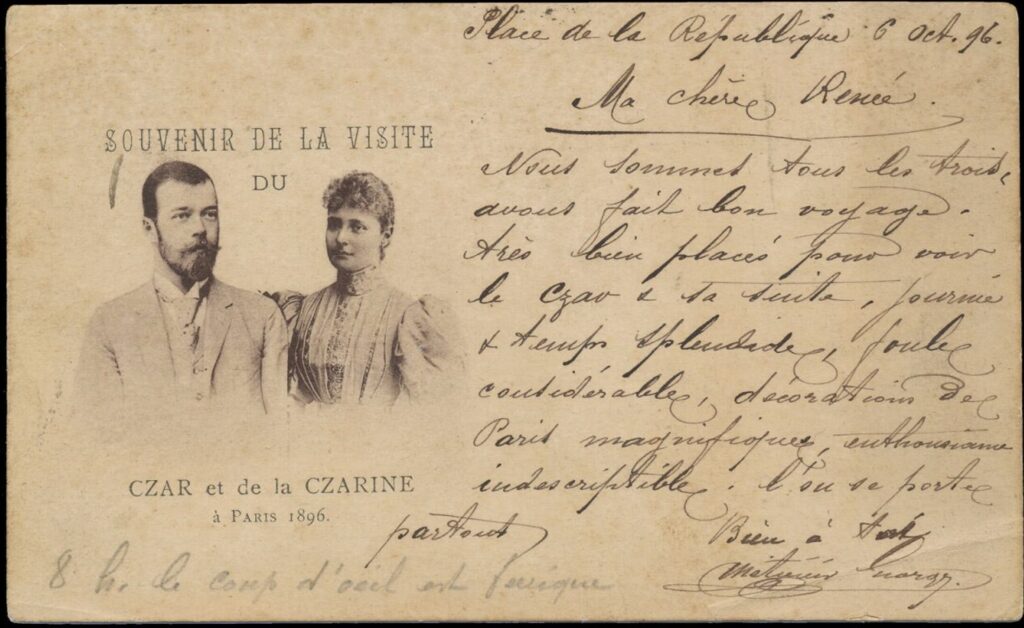 Place de la République 6 Oct. 96.
Ma chère Renée.
SOUVENIR DE LA VISITE
DU
CZAR et de la CZARINE
à PARIS 1896.
Nous sommes tous les trois,
avons fait bon voyage.
très bien placés pour voir
le Czar & sa suite, journée
& temps splendide, foule
considérable, décorations de
Paris magnifiques, enthousiasme
indescriptible. l'on se porte
partout
Bien à toi
8 h. le coup d'oeil est féerique